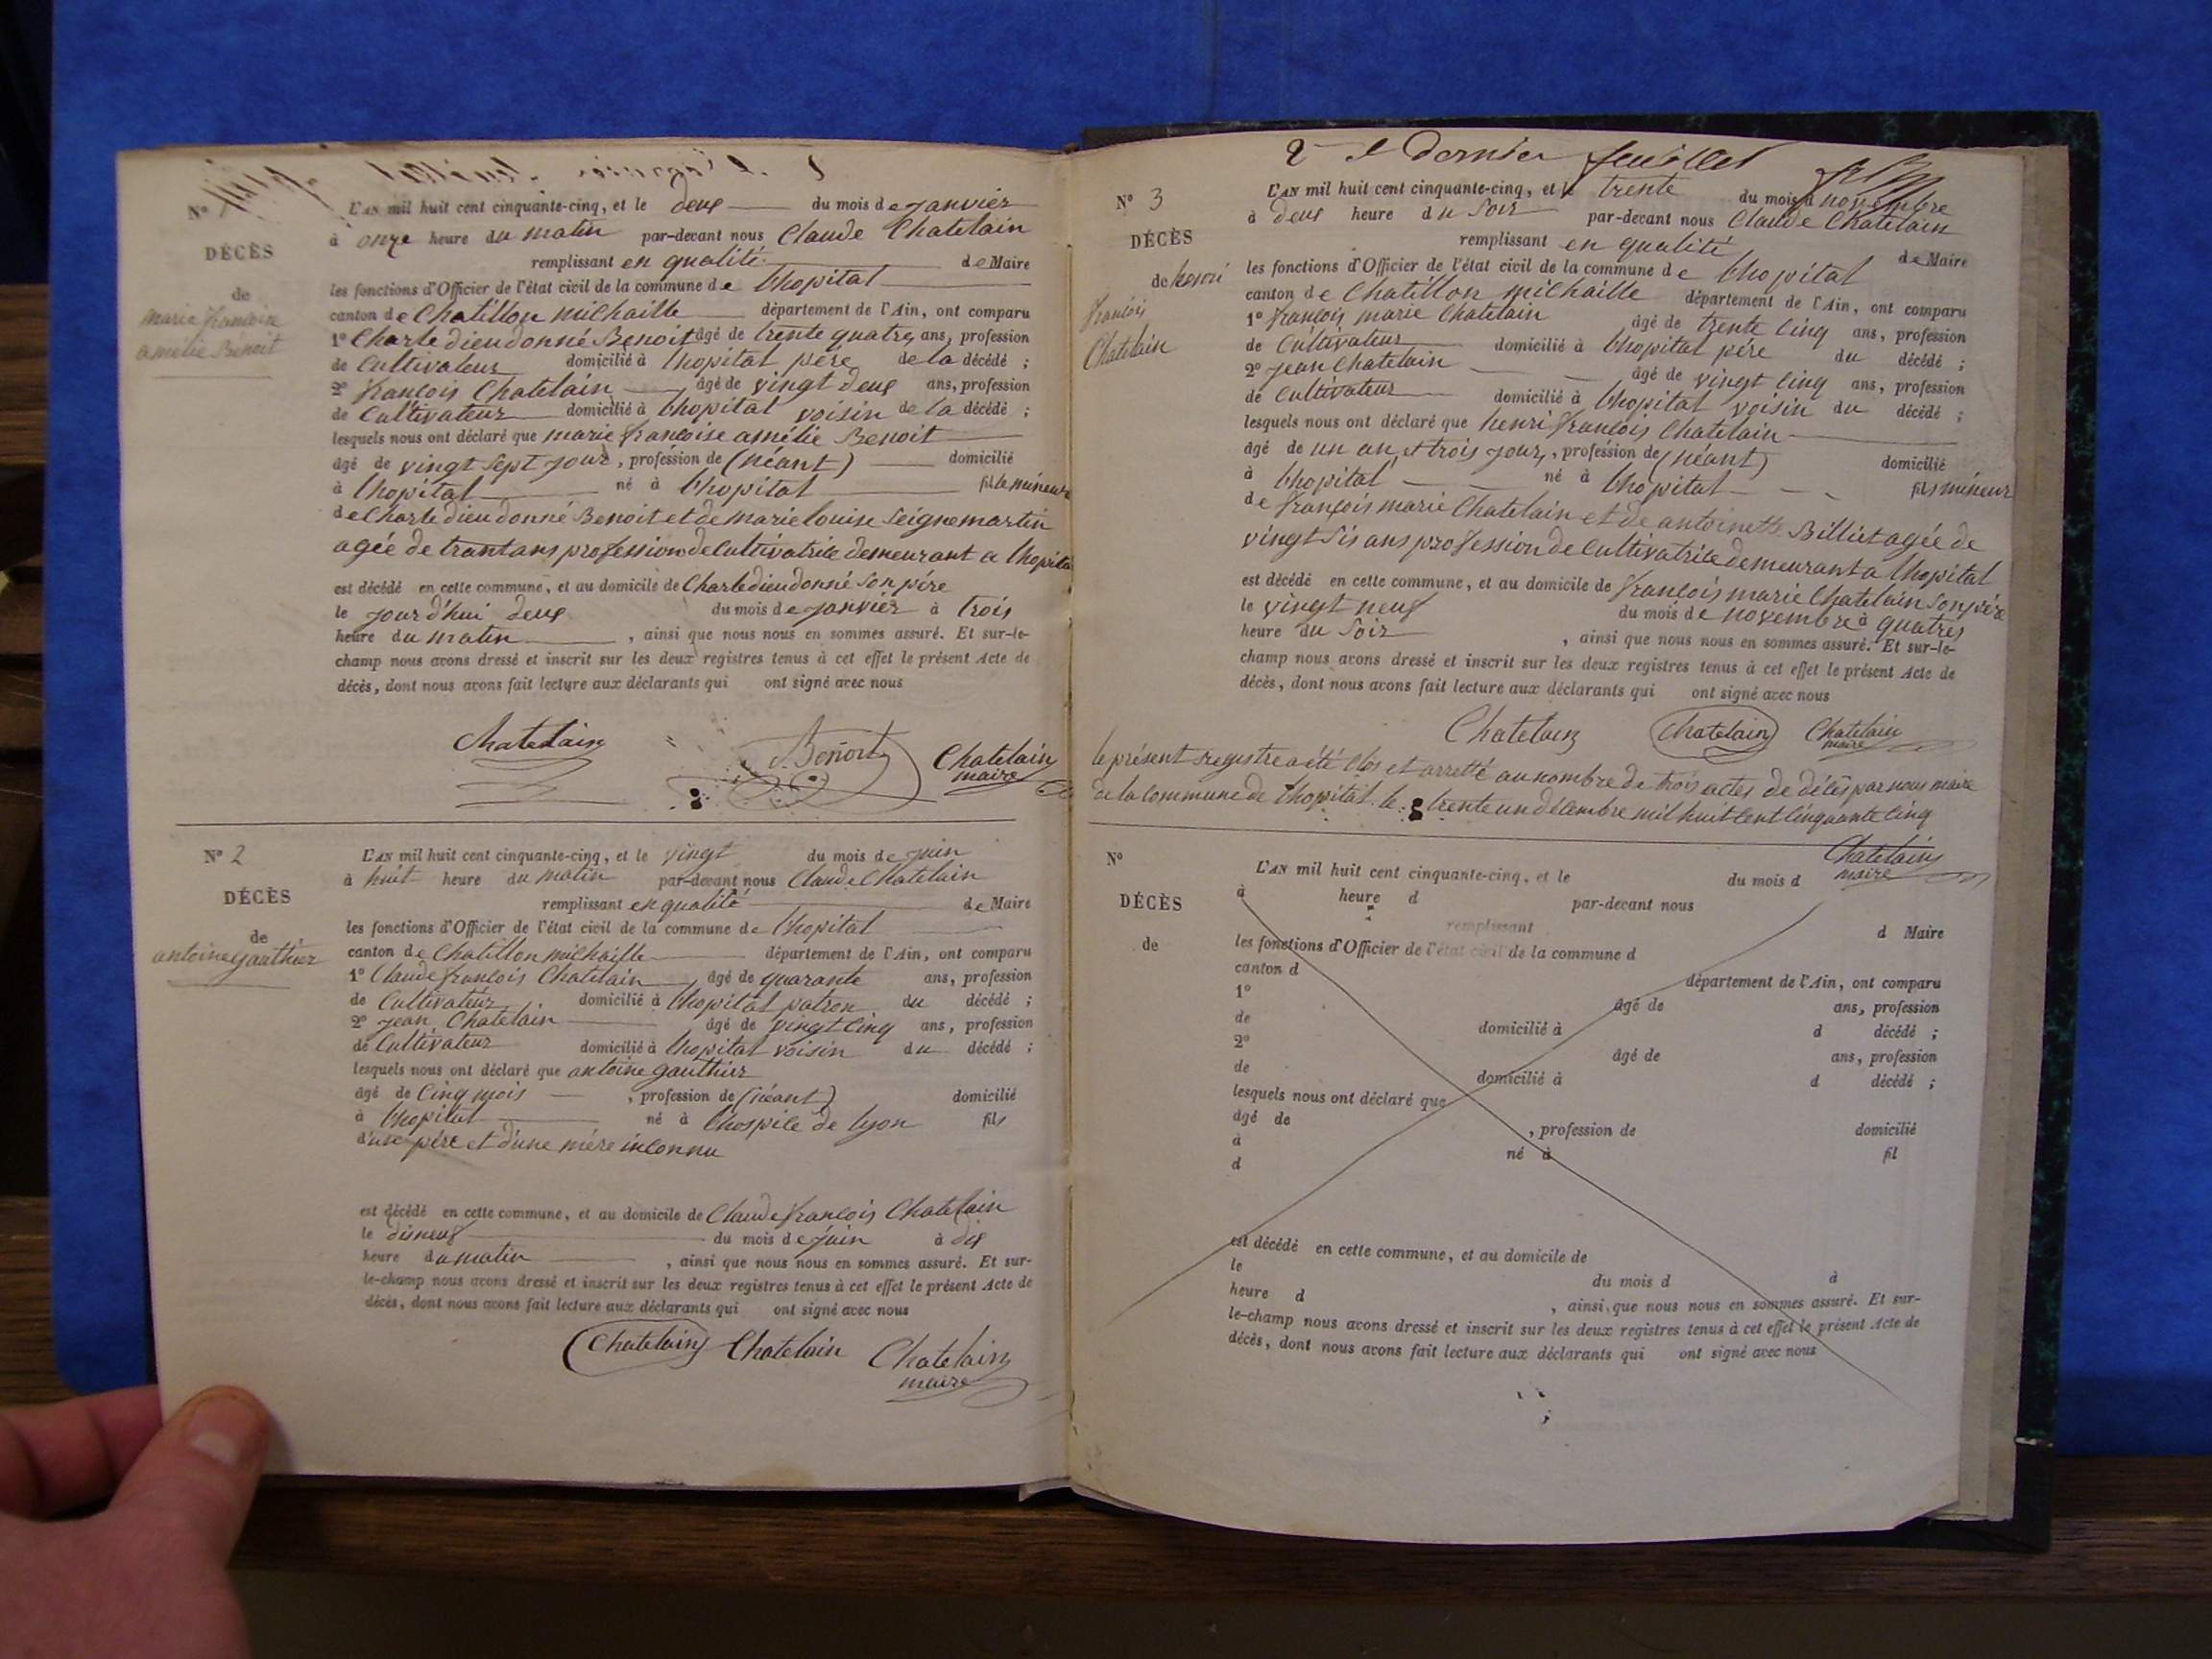 N°
L'AN mil huit cent cinquante-cinq, et le deux du mois de janvier
DÉCÈS
à onze heure du matin par-devant nous Claude Chatelain
remplissant en qualité de Maire
de
les fonctions d'Officier de l'état civil de la commune de Lhopital
marie francoise
canton de Chatillon michaille département de l'Ain, ont comparu
amélie Benoit
1° Charle dieudonné Benoit âgé de trente quatre ans, profession
de Cultivateur domicilié à lhopital père de la décédé ;
2° francois Chatelain âgé de vingt deux ans, profession
de Cultivateur domicilié à lhopital voisin de la décédé ;
lesquels nous ont déclaré que marie francoise amélie Benoit
âgé de vingt sept jour, profession de (néant) domicilié
à lhopital né à lhopital fille mineure
de Charle dieudonné Benoit et de marie louise Seignemartin
agée de trant ans profession de Cultivatrice demeurant a lhopital
est décédé en cette commune, et au domicile de Charle dieudonné Son père
le jourd'hui deux du mois de janvier à trois
heure du matin, ainsi que nous nous en sommes assuré. Et sur-le-
champ nous avons dressé et inscrit sur les deux registres tenus à cet effet le présent Acte de
décès, dont nous avons fait lecture aux déclarants qui ont signé avec nous
Chatelain Benoit Chatelain
maire
N° 2
L'AN mil huit cent cinquante-cinq, et le vingt du mois de juin
à huit heure du matin par-devant nous Claude Chatelain
DÉCÈS
remplissant en qualité de Maire
les fonctions d'Officier de l'état civil de la commune de Lhopital
de
antoine gauthier
canton de Chatillon michaille département de l'Ain, ont comparu
1° Claude francois Chatelain âgé de quarante ans, profession
de Cultivateur domicilié à lhopital patron du décédé ;
2° jean Chatelain âgé de vingt cinq ans, profession
de Cultivateur domicilié à lhopital voisin du décédé ;
lesquels nous ont déclaré que antoine gauthier
âgé de Cinq mois, profession de (néant) domicilié
à lhopital né à lhospice de lyon fils
d'une père et d'une mère inconnu
est décédé en cette commune, et au domicile de Claude francois Chatelain
le disneuf du mois de juin à dix
heure du matin, ainsi que nous nous en sommes assuré. Et sur-
le-champ nous avons dressé et inscrit sur les deux registres tenus à cet effet le présent Acte de
décès, dont nous avons fait lecture aux déclarants qui ont signé avec nous
Chatelain Chatelain Chatelain
maire
2 et Dernier feuillet
N° 3
L'AN mil huit cent cinquante-cinq, et le trente du mois d novembre
à deux heure du Soir par-devant nous Claude Chatelain
DÉCÈS
remplissant en qualité de Maire
de henri
les fonctions d'Officier de l'état civil de la commune de Lhopital
francois
canton de Chatillon michaille département de l'Ain, ont comparu
Chatelain
1° francois marie Chatelain âgé de trente Cinq ans, profession
de Cultivateur domicilié à lhopital père du décédé ;
2° jean Chatelain âgé de vingt Cinq ans, profession
de Cultivateur domicilié à lhopital voisin du décédé ;
lesquels nous ont déclaré que henri francois Chatelain
âgé de un an et trois jour, profession de (néant) domicilié
à lhopital né à lhopital fils mineur
de francois marie Chatelain et de antoinette Billiet agée de
vingt Sis ans profession de Cultivatrice demeurant a lhopital
est décédé en cette commune, et au domicile de francois marie Chatelain Son père
le vingt neuf du mois de novembre à quatres
heure du Soir, ainsi que nous nous en sommes assuré. Et sur-le-
champ nous avons dressé et inscrit sur les deux registres tenus à cet effet le présent Acte de
décès, dont nous avons fait lecture aux déclarants qui ont signé avec nous
Chatelain Chatelain Chatelain
maire
le présent registre a été clos et arretté au nombre de trois actes de décès par nous maire
de la Commune de lhopital le trente un décembre mil huit Cent Cinquante Cinq
Chatelain
maire
N°
L'AN mil huit cent cinquante-cinq, et le du mois d
à heure d par-devant nous
DÉCÈS
remplissant d Maire
de
les fonctions d'Officier de l'état civil de la commune d
canton d département de l'Ain, ont comparu
1° âgé de ans, profession
de domicilié à d décédé ;
2° âgé de ans, profession
de domicilié à d décédé ;
lesquels nous ont déclaré que
âgé de , profession de domicilié
à né à fil
d
est décédé en cette commune, et au domicile de
le du mois d à
heure d , ainsi que nous nous en sommes assuré. Et sur-
le-champ nous avons dressé et inscrit sur les deux registres tenus à cet effet le présent Acte de
décès, dont nous avons fait lecture aux déclarants qui ont signé avec nous